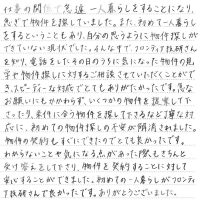 仕事の関係で急遽一人暮らしをすることになり、
急ぎで物件を探していました。また、初めて一人暮らし
をするということもあり、自分の思うように物件探しが
できていない現状でした。そんな中で、フロンティア技研さん
を知り、電話をしたその日のうちに気になった物件の見
学や物件探しに対するご相談させていただくことができ、
スピーディーな対応でとてもありがたかったです。急な
お願いにもかかわらず、いくつかの物件を提案して下
さったり、条件に合う物件を探して下さるなど丁寧な対
応に、初めての物件探しの不安が解消されました。
物件の契約もすぐにできたのでとても良かったです。
わからないことや気になる点があった際もきちんと
受け答えをして下さり、物件を契約することに対して
安心することができました。初めての一人暮らしがフロンティ
ア技研さんで良かったです。ありがとうございました。